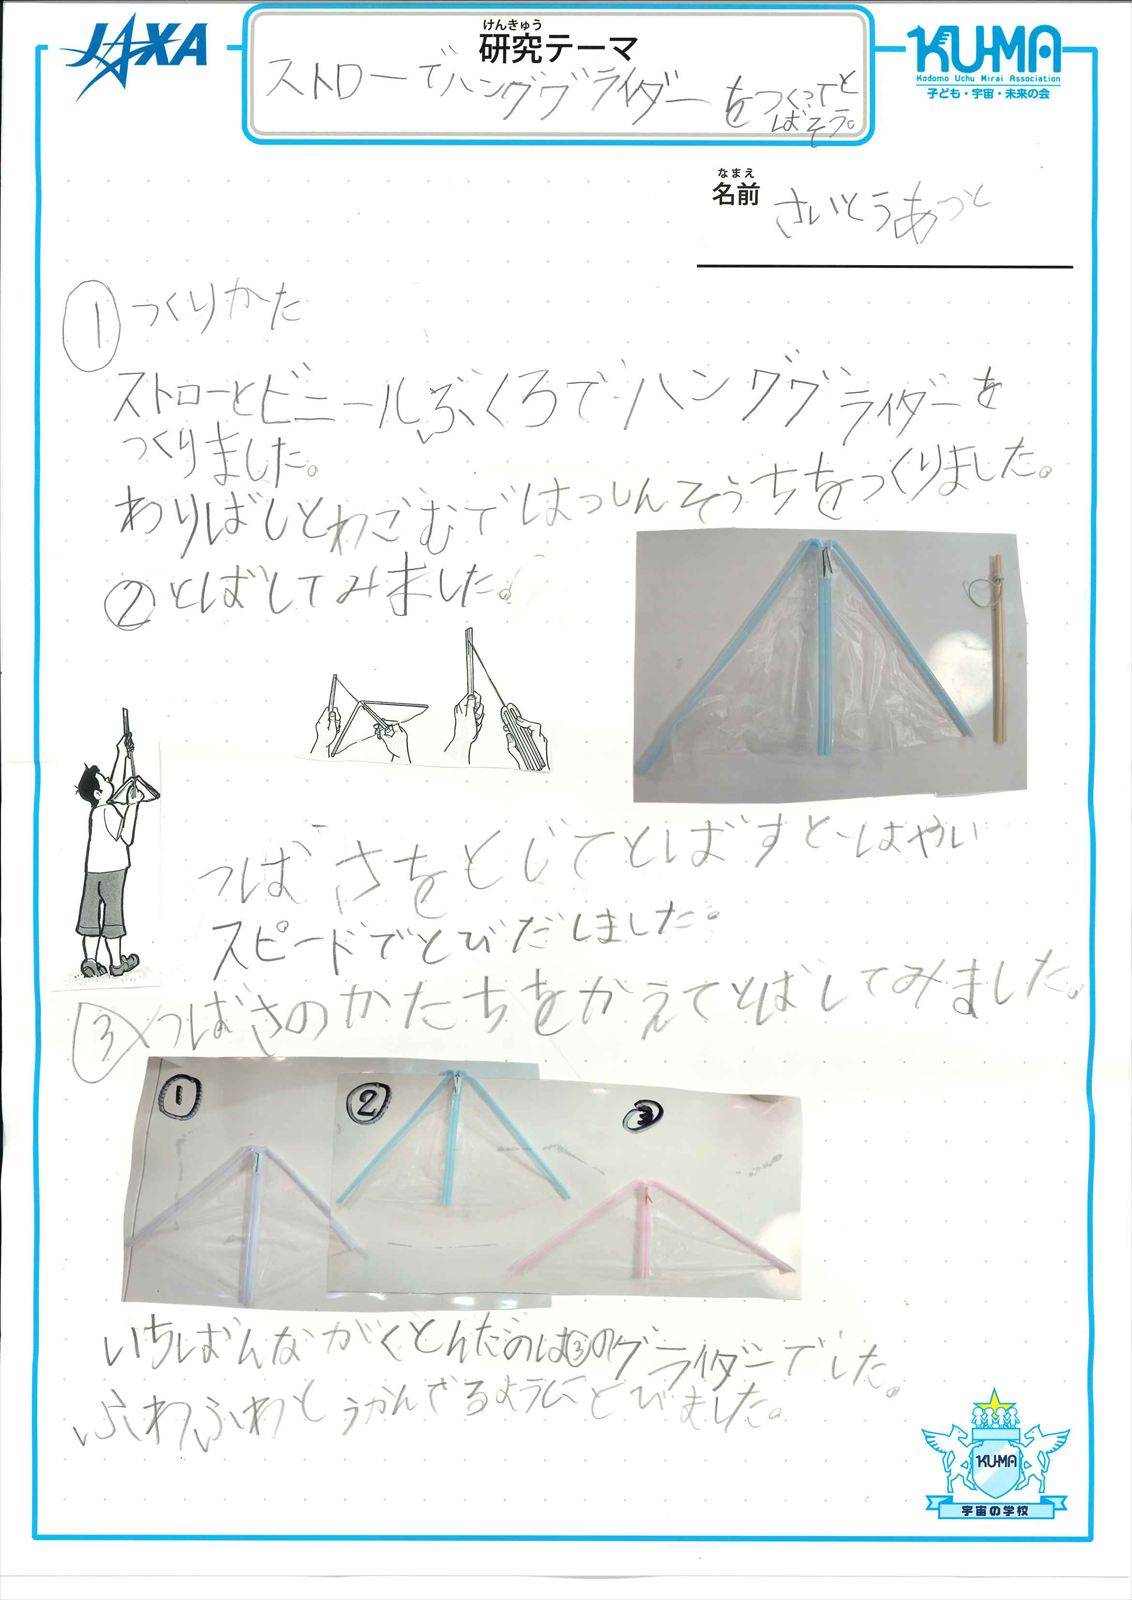 JAXA
けんきゅう
研究テーマ
KU-MA
Kodomo Uchu Mirai Association
子ども・宇宙・未来の会
ストローでハンググライダーをつくってと
ばそう。
なまえ
名前
さいとうあつと
① つくりかた
ストローとビニールぶくろでハンググライダーを
つくりました。
わりばしとわごむではっしんそうちをつくりました。
② とばしてみました。
つばさをとじてとばすとはやい
スピードでとびだしました。
③ つばさのかたちをかえてとばしてみました。
① ② ③
いちばんながくとんだのは③のグライダーでした。
ふわふわとうかんでるようにとびました。
KU-MA
宇宙の学校